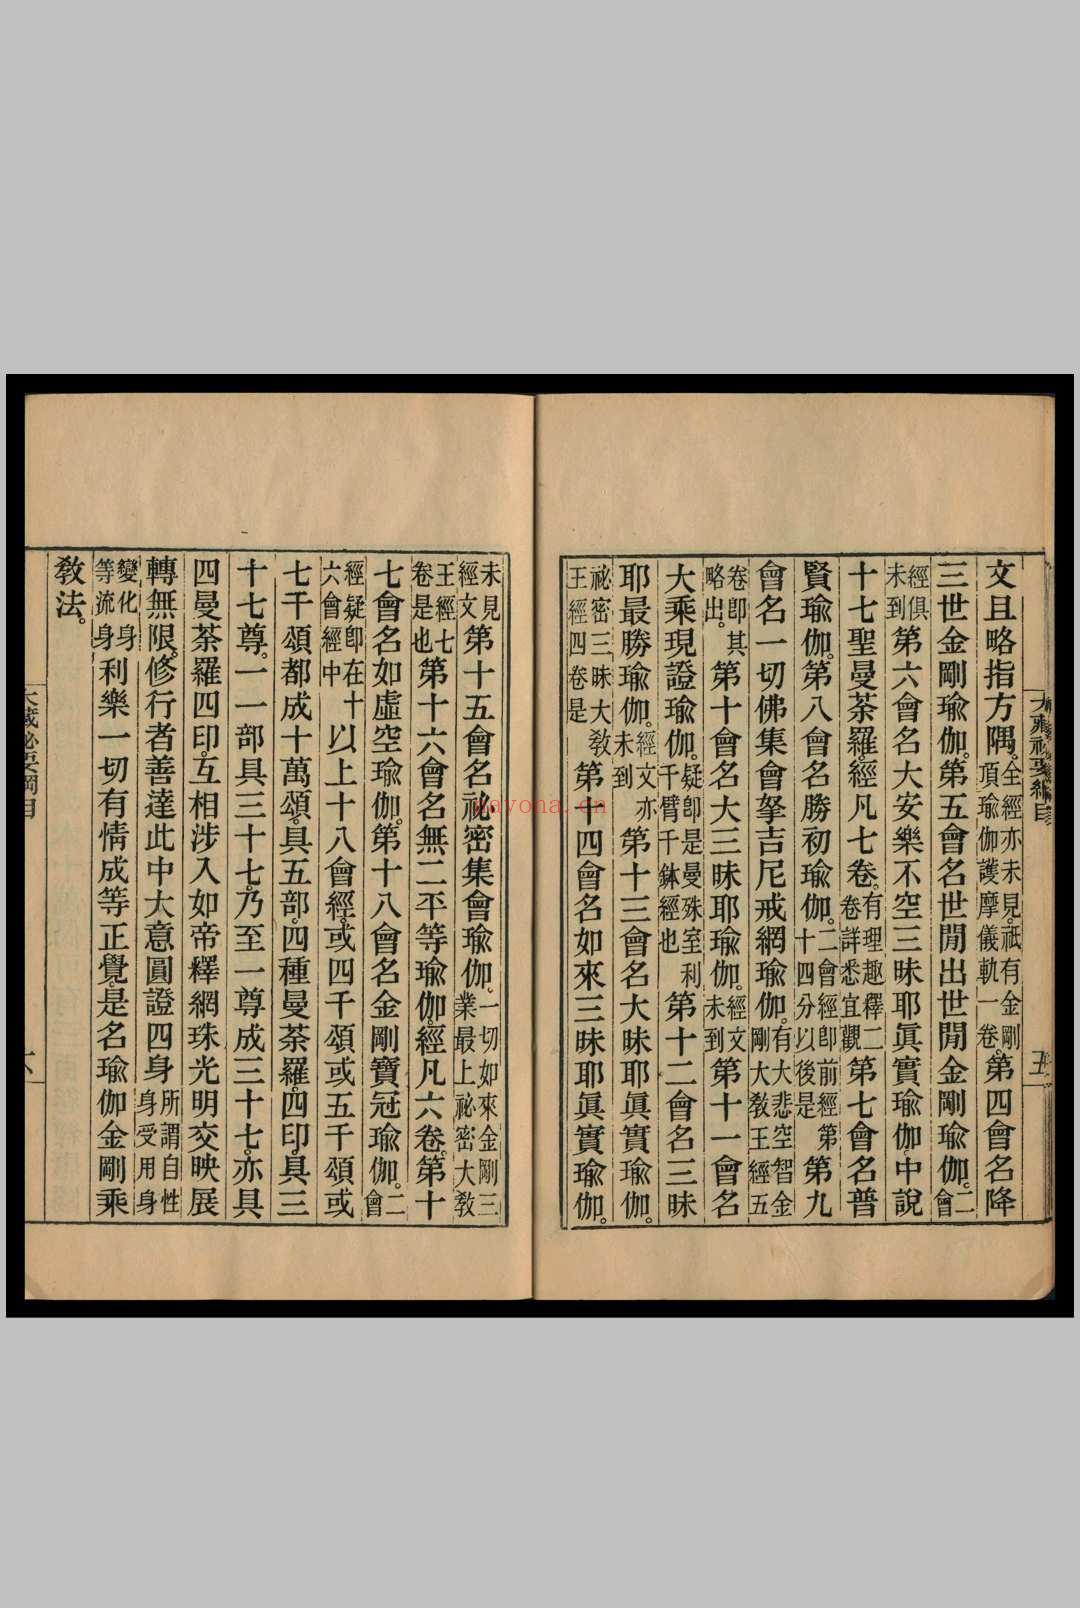 文且略指方隅。全經亦未見。祇有金剛頂瑜伽護摩儀軌一卷。第四會名降
三世金剛瑜伽。第五會名世閒出世閒金剛瑜伽。二會
經俱未到第六會名大安樂不空三昧耶眞實瑜伽。中說
十七聖曼荼羅。經凡七卷。有理趣釋二卷詳悉宜觀第七會名普
賢瑜伽。第八會名勝初瑜伽。二會經即前經第十四分以後是第九
會名一切佛集會拏吉尼戒網瑜伽。有大悲空智金剛大敎王經五
卷即其略出。第十會名大三昧耶瑜伽。經文未到第十一會名
大乘現證瑜伽。疑即是曼殊室利千臂千鉢經也第十二會名三昧
耶最勝瑜伽。經文亦未到第十三會名大昧耶眞實瑜伽。
祕密三昧大敎王經四卷是第十四會名如來三昧耶眞實瑜伽。
未見經文第十五會名祕密集會瑜伽。一切如來金剛三業最上祕密大敎
王經七卷是也第十六會名無二平等瑜伽。經凡六卷。第十
七會名如虛空瑜伽。第十八會名金剛寶冠瑜伽。二會
經疑即在十六會經中以上十八會經。或四千頌或五千頌或
七千頌都成十萬頌。具五部。四種曼荼羅。四印。具三
十七尊。一一部具三十七。乃至一尊成三十七。亦具
四曼荼羅四印。互相涉入如帝釋網珠光明交映展
轉無限。修行者善達此中大意圓證四身所謂自性身受用身
變化身等流身利樂一切有情成等正覺。是名瑜伽金剛乘
敎法。
大藏祕要綱目
五
nayona.cn